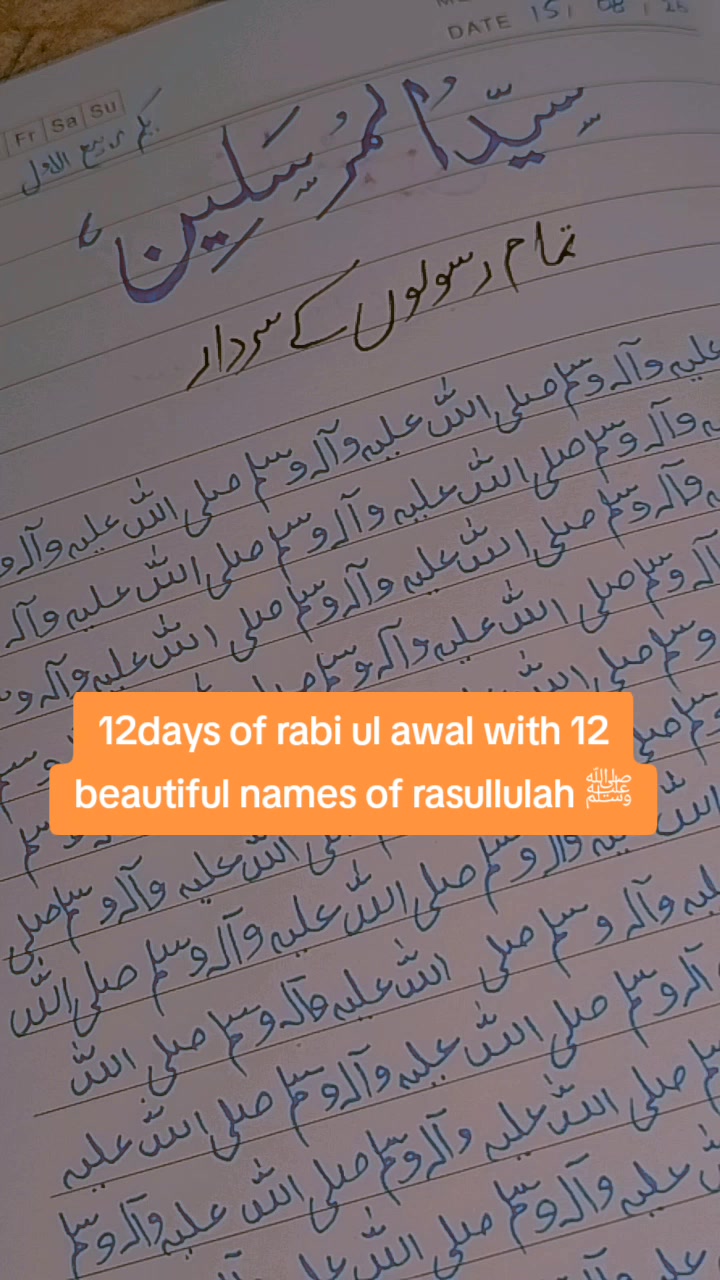 DATE 15 / 08 / 26
Fr Sa Su
یکم ربیع الاول
سَیِّدُالْمُرْسَلِین،
تمام رسولوں کے سردار
علیہ وآلہ وسلم صلی اللہ علیہ وآلہ وسلم صلی اللہ علیہ وآلہ و
وآلہ وسلم صلی اللہ علیہ وآلہ وسلم صلی اللہ علیہ وآلہ
وآلہ وسلم صلی اللہ علیہ وآلہ وسلم صلی اللہ علیہ وآلہ و
آلہ وسلم صلی اللہ علیہ وآلہ وسلم صلی
وسلم صلی اللہ
12days of rabi ul awal with 12
beautiful names of rasullulah ﷺ
اللہ علیہ وآلہ وسلم صلی
اللہ علیہ وآلہ وسلم صلی اللہ علیہ وآلہ وسلم صلی اللہ
علیہ وآلہ وسلم صلی اللہ علیہ وآلہ وسلم صلی اللہ
آلہ وسلم صلی اللہ علیہ وآلہ وسلم صلی اللہ علیہ
وسلم صلی اللہ علیہ وآلہ وسلم صلی اللہ علیہ وآلہ وسلم
علیہ وآلہ وسلم صلی اللہ